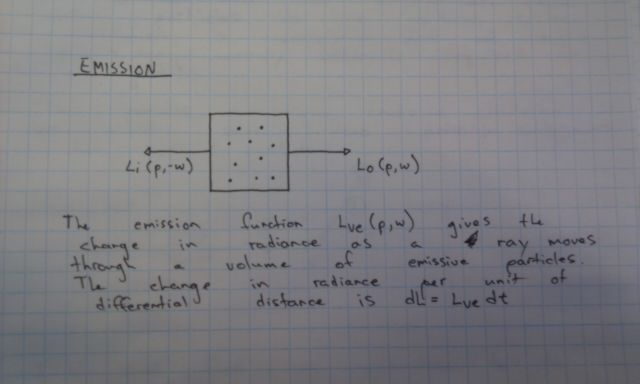 EMISSION
Li(p,-w) Lo(p,w)
The emission function Lve(p,w) gives the
change in radiance as a ray moves
through a volume of emissive particles.
The change in radiance per unit of
differential distance is dL = Lve dt